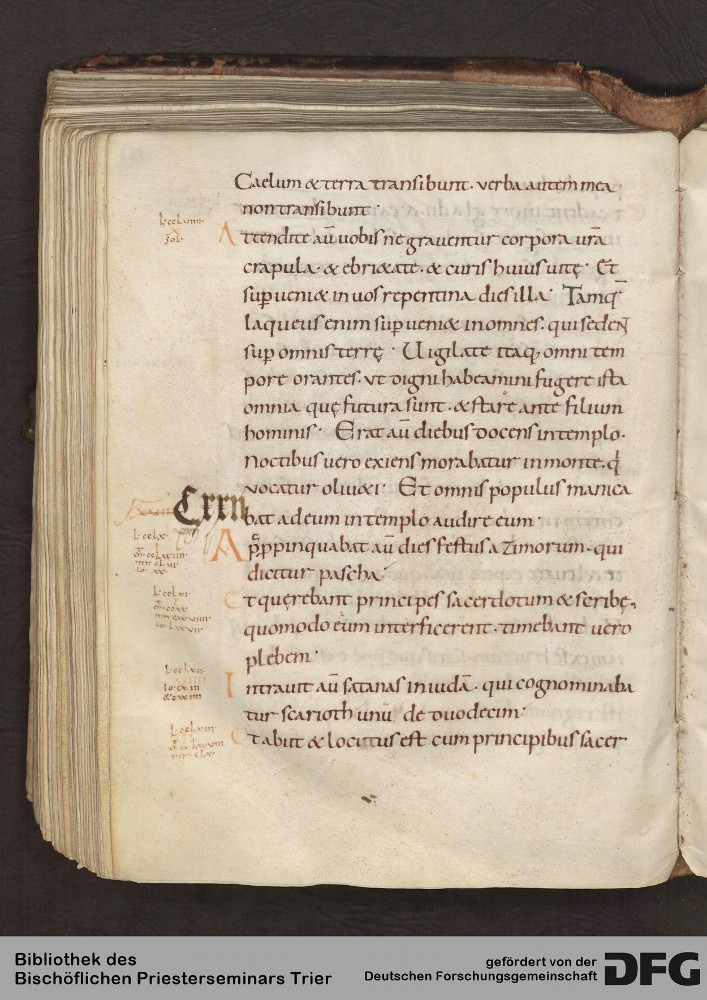 Caelum & terra transibunt · verba autem mea
non transibunt ·
Attendite aū uobis ne graventur corpora vr̄a
crapula · & ebri&ate · & curis huius uitę · Et
sup̄ueni& in vos repentina dies illa · Tamq̄
laqueus enim sup̄veni& in omnes · qui seden̄
sup̄ omnis terrę · Uigilate itaq; omni tem
pore orantes · vt digni habeamini fugere ista
omnia quę futura sunt · & stare ante filium
hominis · Erat aū diebus docens in templo ·
Noctibus uero exiens morabatur in monte · q̄
vocatur oliu&i · Et omnis populus manica
Cxxii
bat ad eum in templo audire eum ·
Appropinquabat aū dies festus azimorum · qui
dicitur pascha ·
Et quęrebant principes sacerdotum & scribę,
quomodo eum interficerent · timebant uero
plebem ·
Intravit aū satanas in iudā · qui cognominaba
tur scarioth unū de duodecim ·
Et abiit & locutus est cum principibus sacer
Bibliothek des
Bischöflichen Priesterseminars Trier
gefördert von der
Deutschen Forschungsgemeinschaft
DFG